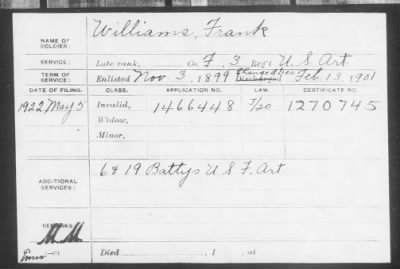 NAME OF SOLDIER: Williams, Frank
SERVICE: Late rank, Co. F. 3 Reg't U. S. Art
TERM OF SERVICE: Enlisted Nov 3, 1899 Discharged Feb 13, 1901
DATE OF FILING. CLASS. APPLICATION NO. LAW. CERTIFICATE NO.
1922 May 5 Invalid, 1466448 J/20 1270745
Widow,
Minor,
ADDITIONAL SERVICES: 6 & 19 Battys U S F. Art
REMARKS:
M M
Died 1 , at